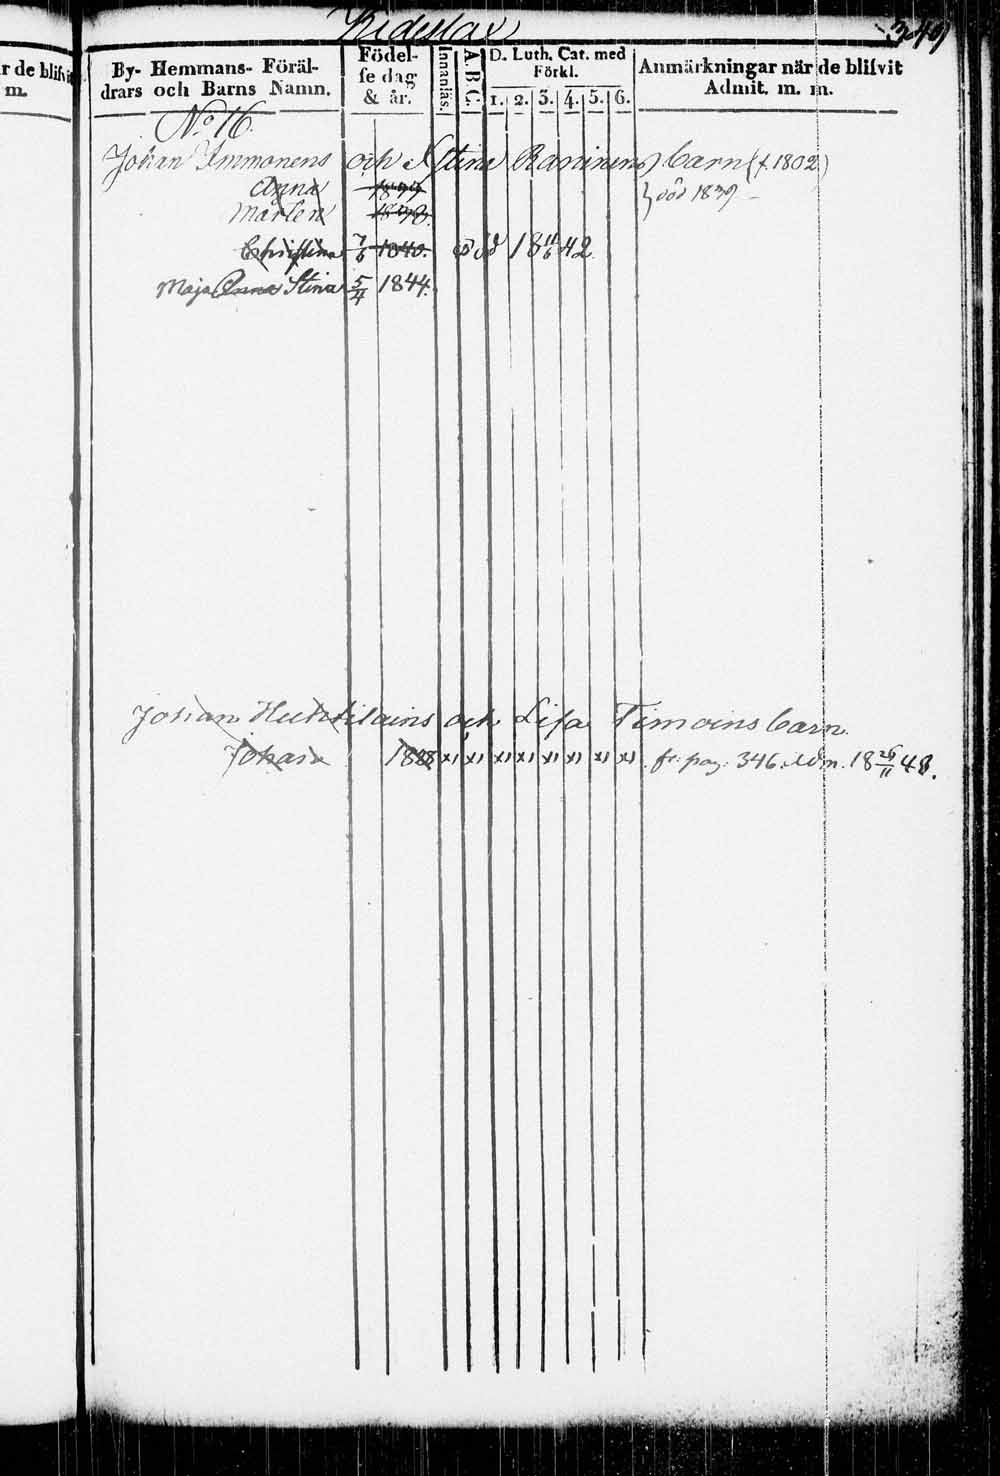 Kideslax
349
r de blifvit
m.
By- Hemmans- Föräl-
drars och Barns Namn.
Födel-
se dag
& år.
Innanläs.
A. B. C.
D. Luth. Cat. med
Förkl.
1. 2. 3. 4. 5. 6.
Anmärkningar när de blifvit
Admit. m. m.
No 16.
Johan Immonens och Stina Raninens barn (f. 1802.)
Anna
} död 1839
Mårten
Christina 7/6 1840. död 18 11/6 42.
Maja Anna Stina 5/4 1844.
Johan Huttilains och Lisa Timoins barn.
Johan 1828 fr. pag. 346. adm. 18 26/11 48.